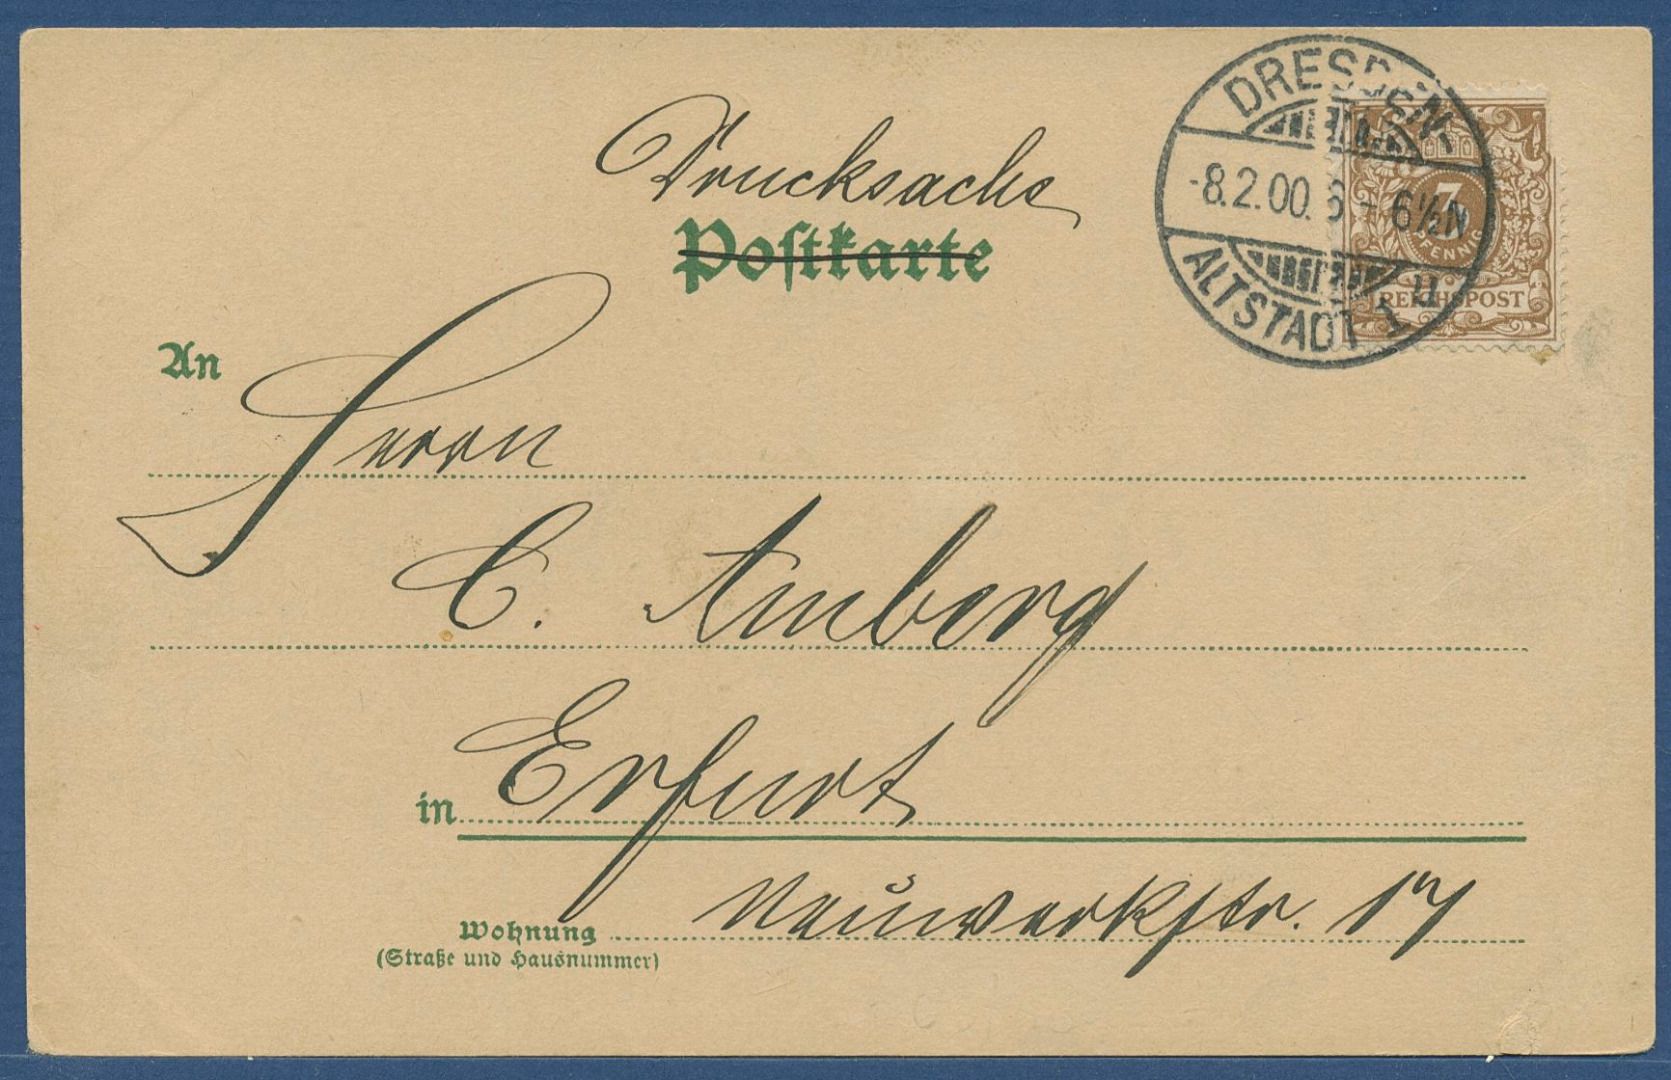 DRESDEN.
-8.2.00. 6 - 6½N
ALTSTADT 1 u
3
PFENNIG
REICHSPOST
Drucksache
Postkarte
An
Herrn
C. Amberg
in Erfurt
Neuwerkstr. 17
Wohnung
(Straße und Hausnummer)